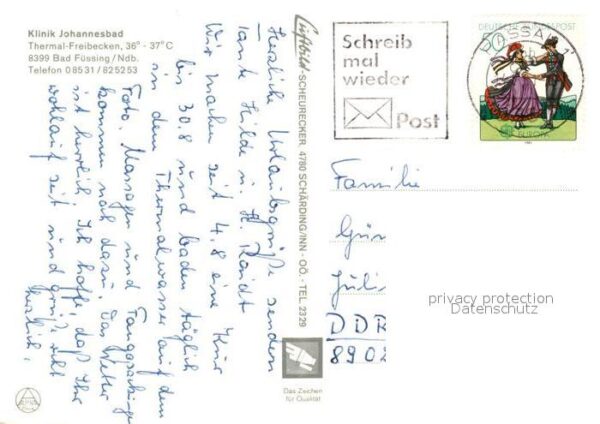 Klinik Johannesbad
Thermal-Freibecken, 36° - 37° C
8399 Bad Füssing / Ndb.
Telefon 0 85 31 / 82 52 53
Herzliche Urlaubsgrüße senden
Tante Hilde u. H.
Wir machen seit 4.8 eine Kur
bis 30.8 und baden täglich
in dem Thermalwasser auf dem
Foto. Massagen und Fangopackungen
kommen noch dazu. Das Wetter
ist herrlich! Ich hoffe, daß Ihr
wohlauf seit und grüße
herzlich.
Luftbild-SCHEURECKER 4780 SCHÄRDING/INN - OÖ. - TEL. 2329
Das Zeichen
für Qualität
Schreib
mal
wieder
Post
DEUTSCHE BUNDESPOST
50
PASSAU 1
EUROPA
1981
Familie
Gün
Juli
DDR
8902
privacy protection
Datenschutz